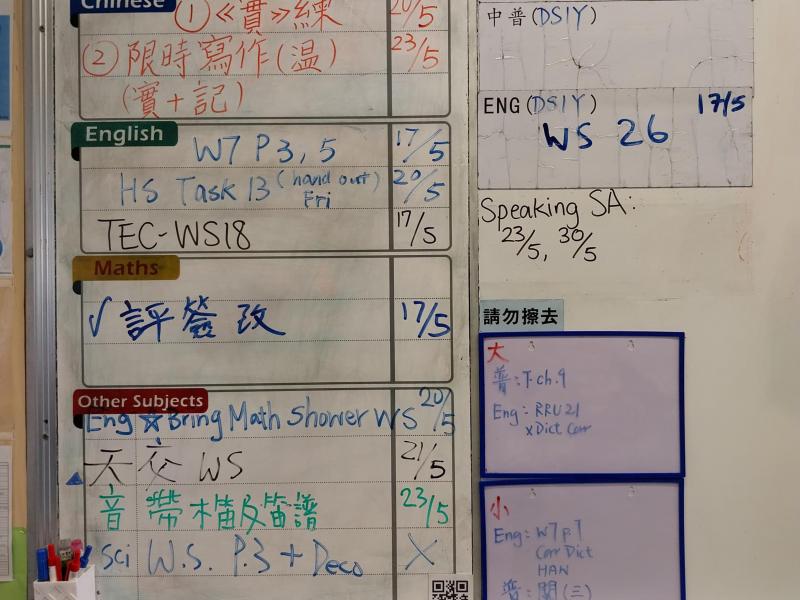 Chinese
①《賣》練 20/5
②限時寫作(温) 23/5
(實+記)
English
W7 P3, 5 17/5
HS Task 13 (hand out) Fri 20/5
TEC-WS18 17/5
Maths
√ 評簽改 17/5
Other Subjects
Eng ☆Bring Math Shower WS 20/5
天交 WS 21/5
音 帶木笛及笛譜 23/5
Sci W.S. P.3 + Deco X
中普(DS1Y)
ENG(DS1Y) 17/5
WS 26
Speaking SA:
23/5, 30/5
請勿擦去
大
普:下ch.9
Eng: RRU21
x Dict Corr
小
Eng: W7 p.7
Corr Dict
HAW
普:關(三)